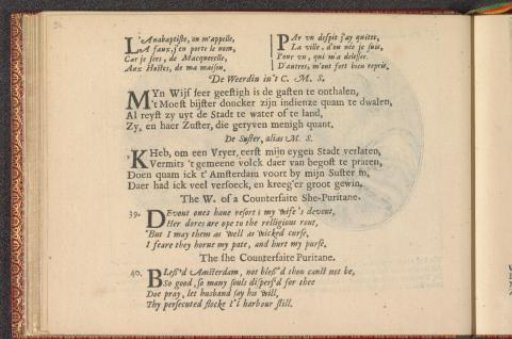 L'Anabaptiste, on m'appelle,
A faux, j'en porte le nom,
Car je sers, de Macquerelle,
Aux Hostes, de ma maison.
PAr vn despit j'ay quitté,
La ville, d'ou née je suis,
Pour vn, qui m'a delessé.
D'autres, m'ont fort bien repris.
De Weerdin in't C. M. S.
MYn Wijf seer geestigh is de gasten te onthalen,
't Moest bijster doncker zijn indienze quam te dwalen,
Al reyst zy uyt de Stadt te water of te land,
Zy, en haer Zuster, die geryven menigh quant.
De Suster, alias M. S.
'K Heb, om een Vryer, eerst mijn eygen Stadt verlaten,
Vermits 't gemeene volck daer van begost te praten,
Doen quam ick t'Amsterdam voort by mijn Suster in,
Daer had ick veel versoeck, en kreeg'er groot gewin.
The W. of a Counterfaite She-Puritane.
39. DEvout ones haue resort: my wife's devout,
Her dores are ope to the relligious rout,
But I may them as well as wicked curse,
I feare they horne my pate, and hurt my purse,
The she Counterfaite Puritane.
40. BLess'd Amsterdam, not bless'd thou canst not be,
So good, so many souls dispers'd for thee
Doe pray, let husband say his will,
Thy persecuted flocke I'l harbour still.